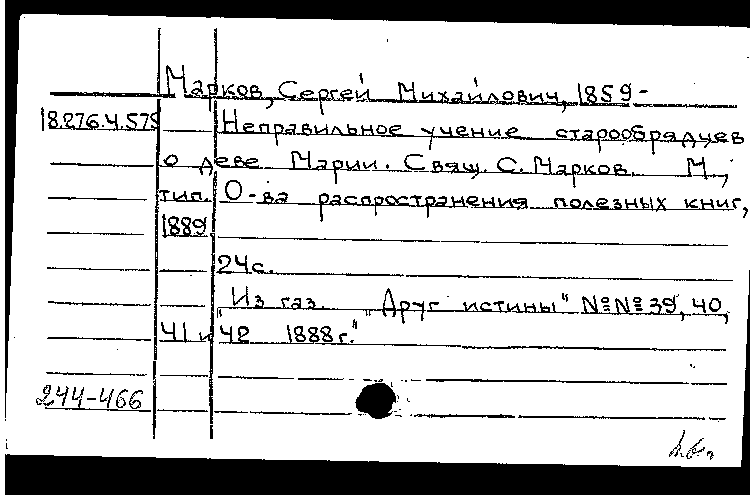 Марков, Сергей Михайлович, 1859-
18.276.4.575 Неправильное учение старообрядцев
о деве Марии. Свящ. С. Марков. М.,
тип. О-ва распространения полезных книг,
1889
24с.
"Из газ. „Друг истины" №№ 39, 40,
41 и 42 1888 г."
244-466